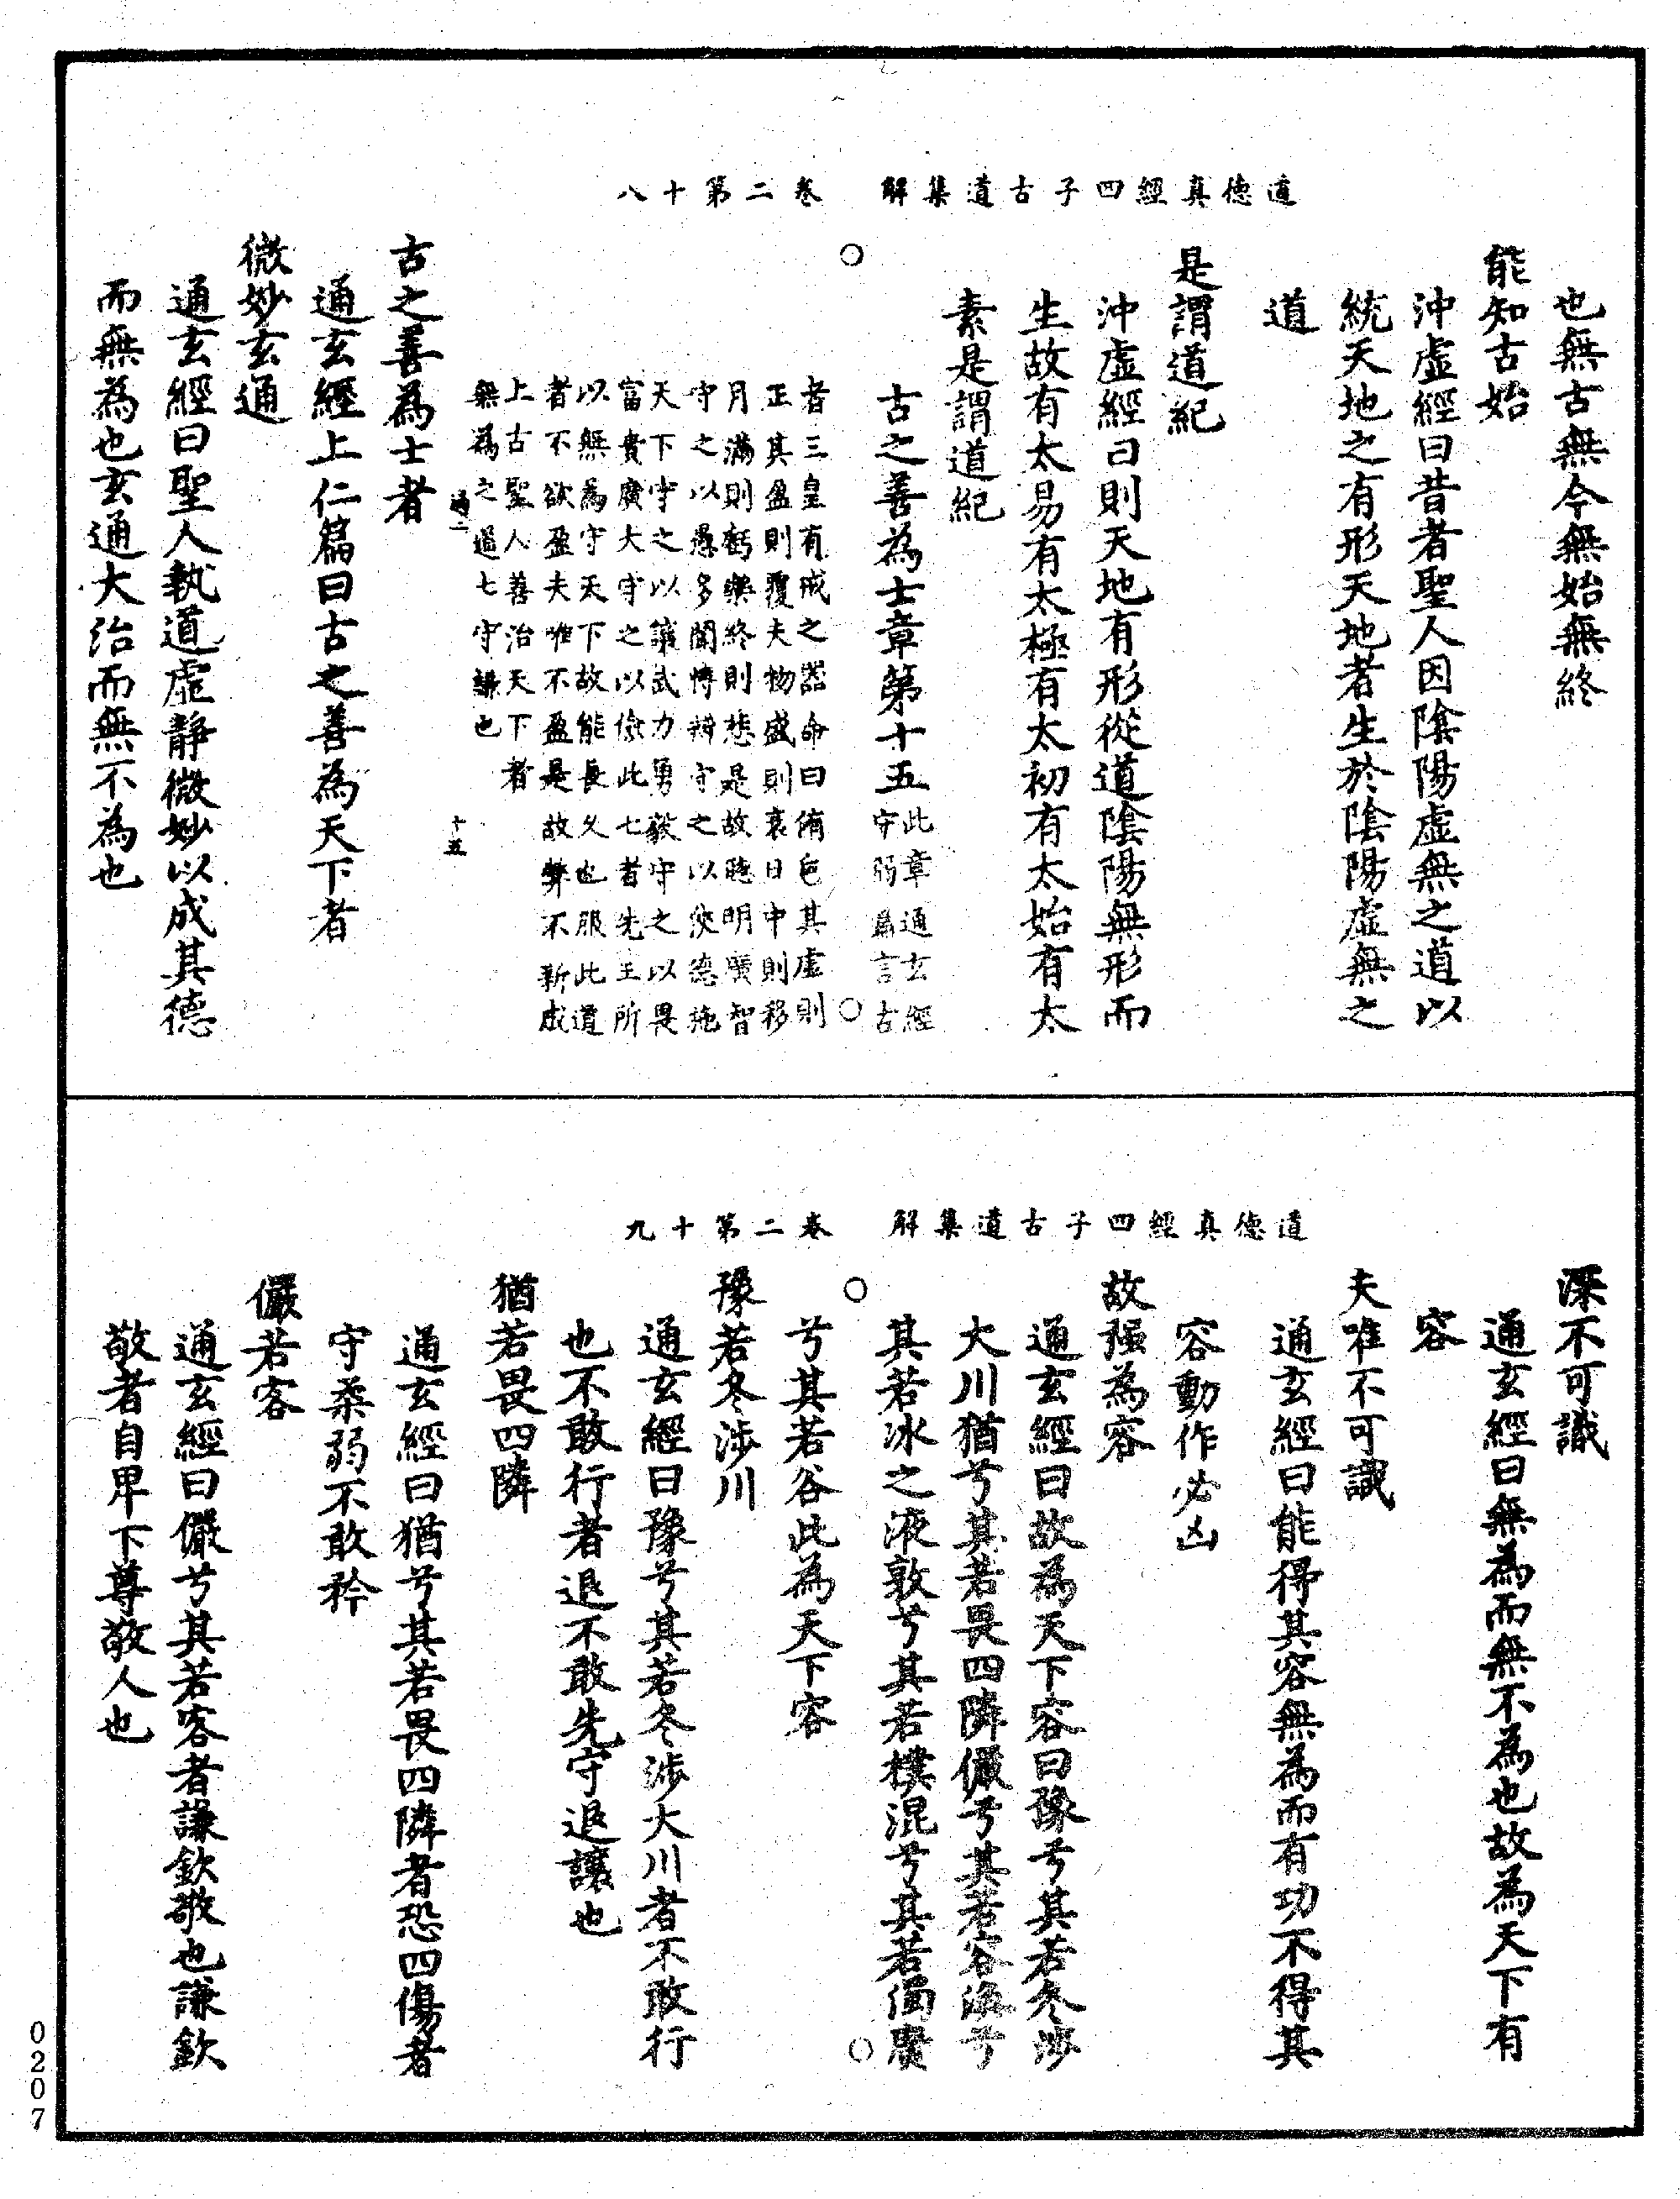 道德真經四子古道集解　卷二第十八
也無古無今無始無終
能知古始
沖虛經曰昔者聖人因陰陽虛無之道以
統天地之有形天地者生於陰陽虛無之
道
是謂道紀
沖虛經曰則天地有形從道陰陽無形而
生故有太易有太極有太初有太始有太
素是謂道紀
古之善為士章第十五此章通玄經
守弱篇言古
者三皇有戒之器命曰侑卮其虛則
正其盈則覆夫物盛則衰日中則移
月滿則虧樂終則悲是故聰明廣智
守之以愚多聞博辯守之以儉德施
天下守之以讓武力勇毅守之以畏
富貴廣大守之以儉此七者先王所
以無為守天下故能長久也服此道
者不欲盈夫唯不盈是故弊不新成
上古聖人善治天下者
無為之道七守謙也
十五
古之善為士者
通玄經上仁篇曰古之善為天下者
微妙玄通
通玄經曰聖人執道虛靜微妙以成其德
而無為也玄通大治而無不為也
道德真經四子古道集解　卷二第十九
深不可識
通玄經曰無為而無不為也故為天下有
容
夫唯不可識
通玄經曰能得其容無為而有功不得其
容動作必凶
故强為容
通玄經曰故為天下容曰豫兮其若冬涉
大川猶兮其若畏四隣儼兮其若容渙兮
其若冰之液敦兮其若樸混兮其若濁廣
兮其若谷此為天下容
豫若冬涉川
通玄經曰豫兮其若冬涉大川者不敢行
也不敢行者退不敢先守退讓也
猶若畏四隣
通玄經曰猶兮其若畏四隣者恐四傷者
守柔弱不敢矜
儼若客
通玄經曰儼兮其若客者謙欽敬也謙欽
敬者自卑下尊敬人也
0207